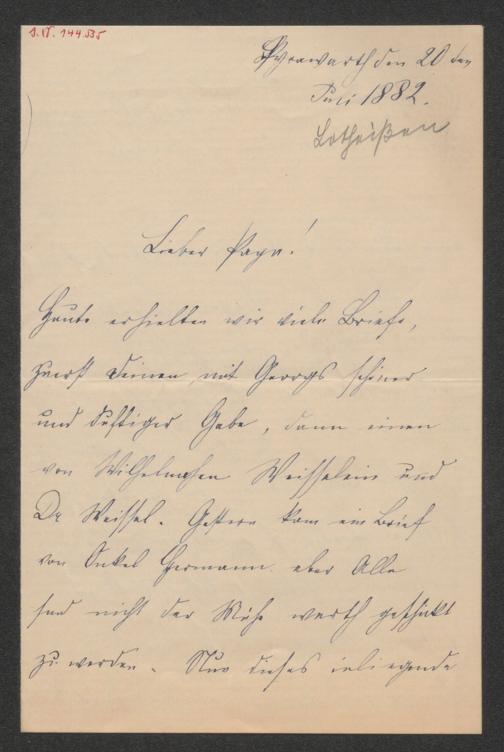 J.N. 144.535
Pyrawarth den 20 ten
Juli 1882.
Lotheißen
Lieber Papa!
Heute erhielten wir viele Briefe,
zuerst Deinen, mit Georgs schöner
und duftiger Gabe, dann einen
von Wilhelm Weisselein und
Dr Weissel. Gestern kam ein Brief
von Onkel Hermann. aber Alle
sind nicht der Mühe werth geschickt
zu werden. Nur dieses inliegende